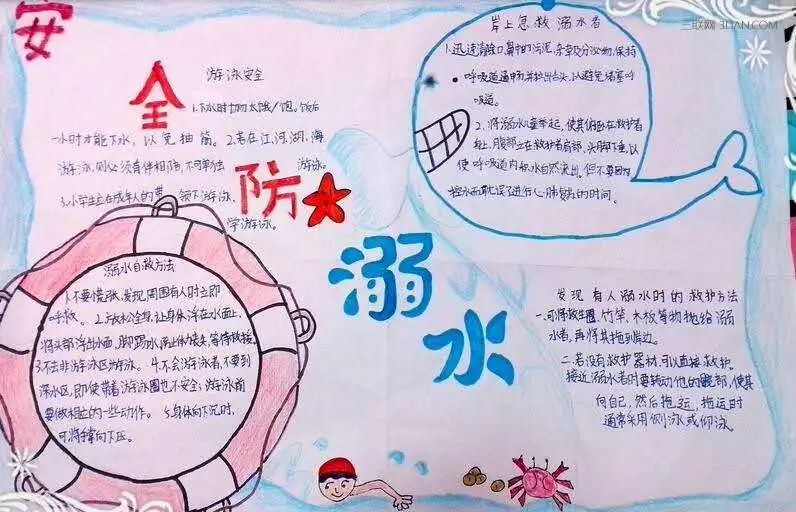 三联网 3LIAN.COM
安
全
防
溺
水
游泳安全
1.下水时切勿太饿/饱。饭后
一小时才能下水，以免抽筋。2.若在江、河、湖、海
游泳，则必须有伴相陪，不可单独游泳。
3.小学生应在成年人的带领下游泳、
学游泳。
溺水自救方法
1.不要慌张，发现周围有人时立即
呼救。2.放松全身，让身体浮在水面上，
将头部浮出水面，脚踢水，防止体力丧失，等待救援。
3.不去非游泳区游泳。4.不会游泳者，不要到
深水区，即使带着游泳圈也不安全；游泳前
要做相应的一些动作。5.身体向下沉时，
可将手掌向下压。
岸上急救溺水者
1.迅速清除口鼻中的污泥、杂草及分泌物，保持
呼吸道通畅，并拉出舌头，以避免堵塞呼
吸道。
2.将溺水儿童举起，使其俯卧在救护者
肩上，腹部在救护者肩部，头脚下垂，以
使呼吸道内积水自然流出。但不要因为
控水而耽误了进行心肺复苏的时间。
发现有人溺水时的救护方法
一.可将救生圈、竹竿、木板等物抛给溺
水者，再将其拖到岸边。
二.若没有救护器材，可以直接救护。
接近溺水者时要转动他的髋部，使其
背向自己，然后拖运。拖运时
通常采用侧泳或仰泳